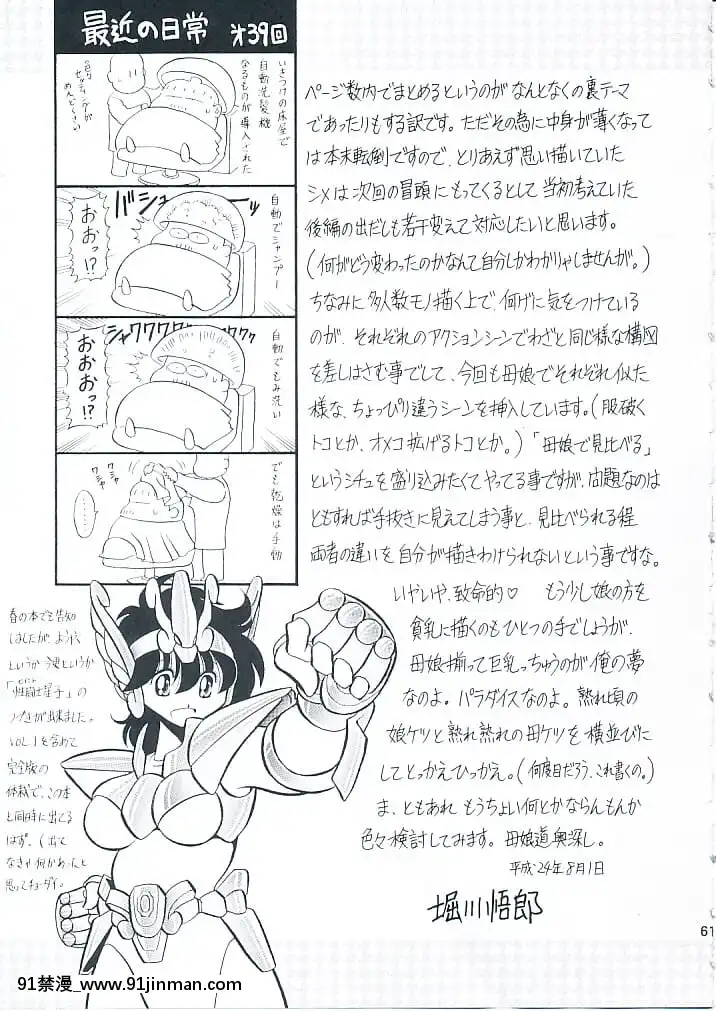 最近の日常 オ39回
いきつけの床屋で
自動洗髪機
なるものが導入された
セッティングが
めんどくさい
バシューーッ
自動でシャンプー
おおっ!?
シャワワワワワワワ
自動でもみ洗い
おおおっ!?
でも乾燥は手動
ワシャ
ワシャ
……
ページ数内でまとめるというのが なんとなくの裏テーマ
であったりもする訳です。ただその為に中身が薄くなって
は本末転倒ですので、とりあえず思い描いていた
シメは次回の冒頭にもってくるとして当初考えていた
後編の出だしも若干変えて対応したいと思います。
(何がどう変わったのかなんて自分しかわかりゃしませんが。)
ちなみに多人数モノ描く上で、何げに気をつけている
のが、それぞれのアクションシーンでわざと同じ様な構図
を差しはさむ事でして、今回も母娘でそれぞれ似た
様な、ちょっぴり違うシーンを挿入しています。(服破く
トコとか、オメコ拡げるトコとか。)「母娘で見比べる」
というシチュを盛り込みたくてやってる事ですが、問題なのは
ともすれば手抜きに見えてしまう事と、見比べられる程
両者の違いを自分が描きわけられないという事ですな。
いやいや、致命的♡ もう少し娘の方を
貧乳に描くのもひとつの手でしょうが、
母娘揃って巨乳っちゅうのが俺の夢
なのよ。パラダイスなのよ。熟れ頃の
娘ケツと熟れ熟れの母ケツを横並びに
してとっかえひっかえ。(何度目だろう、これ書くの。)
ま、ともあれ もうちょい何とかならんもんか
色々検討してみます。母娘道奥深し。
平成24年8月1日
堀川悟郎
春の本でも告知
しましたが、ようやく
というか 今更というか
「性闘士星子」の
つづきが出来ました。
VOL.1を含めて
完全版の
体裁で、この本
と同時に出てる
はず。(出て
なきゃ何かあったと
思ってチョーダイ。)
61
91禁漫_www.91jinman.com